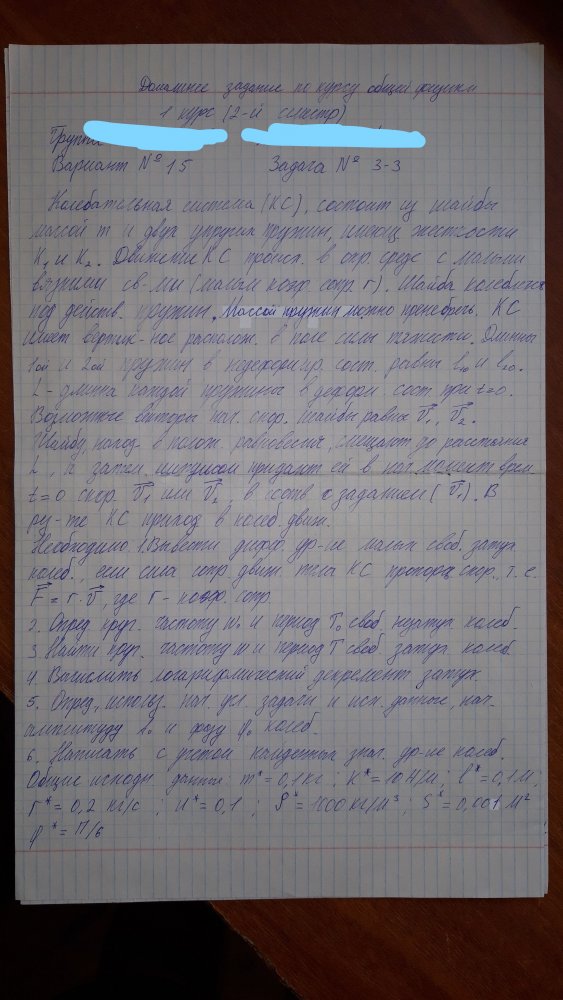 Домашнее задание по курсу общей физики
1 курс (2-й семестр)
Группа
Вариант № 15 Задача № 3-3
Колебательная система (КС), состоит из шайбы
массой m и двух упругих пружин, имеющ. жесткости
K₁ и K₂. Движение КС происх. в опр. среде с малыми
вязкими св-ми (малым коэф. сопр. r). Шайба колеблется
под действ. пружин. Массой пружин можно пренебречь. КС
имеет вертик-ное располож. в поле силы тяжести. Длины
1ой и 2ой пружин в недеформир. сост. равны l₁₀ и l₂₀.
L - длина каждой пружины в деформ. сост. при t=0.
Возможные векторы нач. скор. шайбы равны v⃗₁, v⃗₂.
Шайбу, наход. в полож. равновесия, смещают до расстояния
L, а затем импульсом придают ей в нач. момент врем.
t=0 скор. v⃗₁ или v⃗₂, в соотв. с заданием (v⃗₁). В
рез-те КС приход. в колеб. движ.
Необходимо 1. Вывести дифф. ур-ие малых своб. затух.
колеб., если сила сопр. движ. тела КС пропорц. скор., т. е.
F⃗ = r·v⃗, где r - коэф. сопр.
2. Опред. круг. частоту ω₀ и период T₀ своб. незатух. колеб.
3. Найти круг. частоту ω и период T своб. затух. колеб.
4. Вычислить логарифмический декремент затух.
5. Опред., использ. нач. усл. задачи и исх. данные, нач.
амплитуду A₀ и фазу φ₀ колеб.
6. Написать с учетом найденных знач. ур-ие колеб.
Общие исходн. данные: m* = 0,1 кг; K* = 10 Н/м; l* = 0,1 м;
r* = 0,2 кг/с; = 0,1; ρ* = 1000 кг/м³; S* = 0,001 м²
φ* = π/6